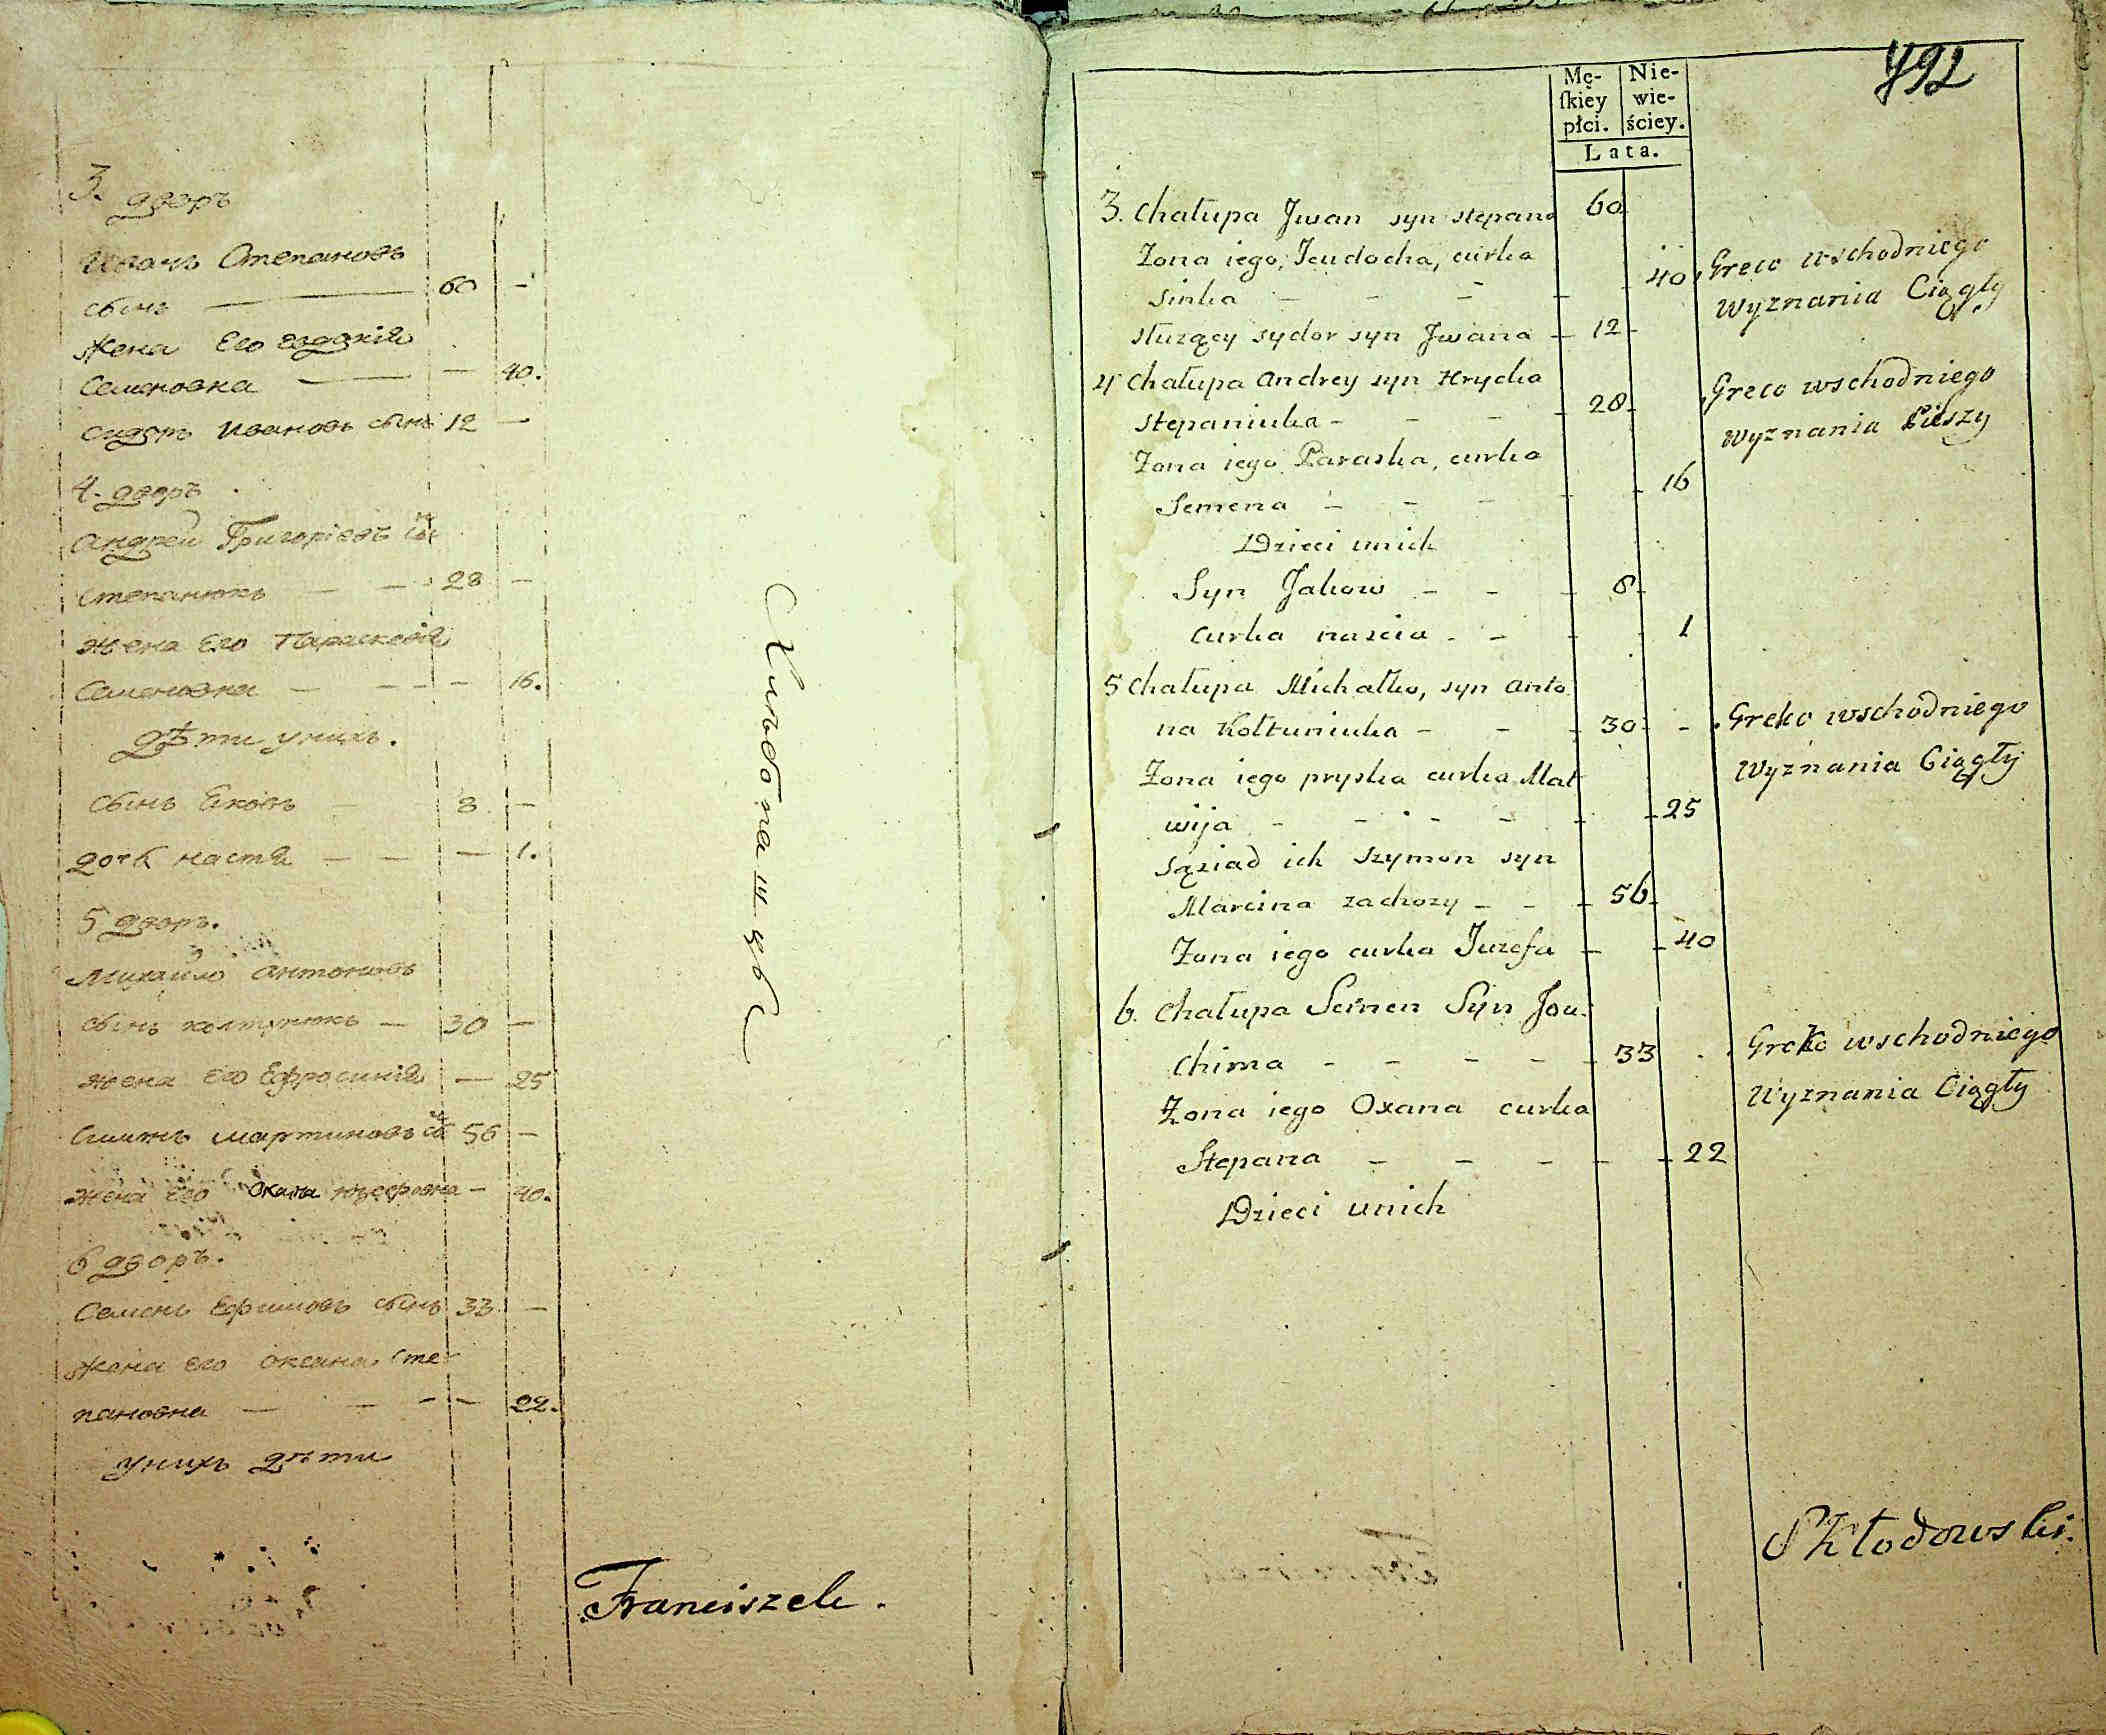 3. дворъ
Иванъ Степановъ
сынъ — 60 —
жена Его Евдокия
Семеновна — — 40.
Сидоръ Ивановъ сынъ 12 —
4. дворъ
Андреи Григориевъ сынъ
Степанюкъ — — 28 —
жена Его Параскевия
Семеновна — — — 16.
дѣти унихъ.
сынъ Яковъ — 8 —
дочь настя — — — 1.
5 дворъ.
Михаило антоновъ
сынъ колтунюкъ — 30 —
жена Его Ефросиния — 25
Симонъ мартиновъ сы 56 —
жена Его юзефовна — 40.
6 дворъ.
Семенъ Ефимовъ сынъ 33 —
жена его оксана сте
пановна — — — — 22.
унихъ дѣти
Franciszek.
492
Mę-
ſkiey
płci.
Nie-
wie-
ściey.
Lata.
3. Chałupa Jwan syn stepana 60
Żona iego, Jeudocha, curka
Sinka — — — 40, Greco wschodniego
Wyznania Ciągły
służący sydor syn Jwana — 12 —
4 Chałupa Andrey syn Hrycka
stepaniuka — — — 28 Greco wschodniego
Wyznania Pieszy
Żona iego Paraska, curka
Semena — — — 16
Dzieci unich
Syn Jakow — — — 8
Curka nascia — — 1
5 Chałupa Michałko, syn anto
na Kołtuniuka — — — 30 — . Greko wschodniego
Wyznania Ciągły
Żona iego pryska curka Mat
wija — — — — 25
sąsiad ich szymon syn
Marcina zachozy — — — 56
Żona iego curka Juzefa — — 40
6. Chałupa Semen Syn Jou
Chima — — — — 33 Greko wschodniego
Wyznania Ciągły
Żona iego Oxana curka
Stepana — — — — 22
Dzieci unich
Skłodowski.